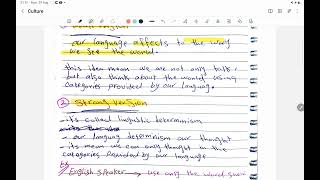 Culture
our language affects to the way
we see the world.
this idea mean we are not only talk,
but also think about the world using
categories provided by our language.
2 Strong version
it's called linguistic determinism
our language determinism our thought
its mean we can only thought in the
categories provided by our language
English speaker → use only the word snow